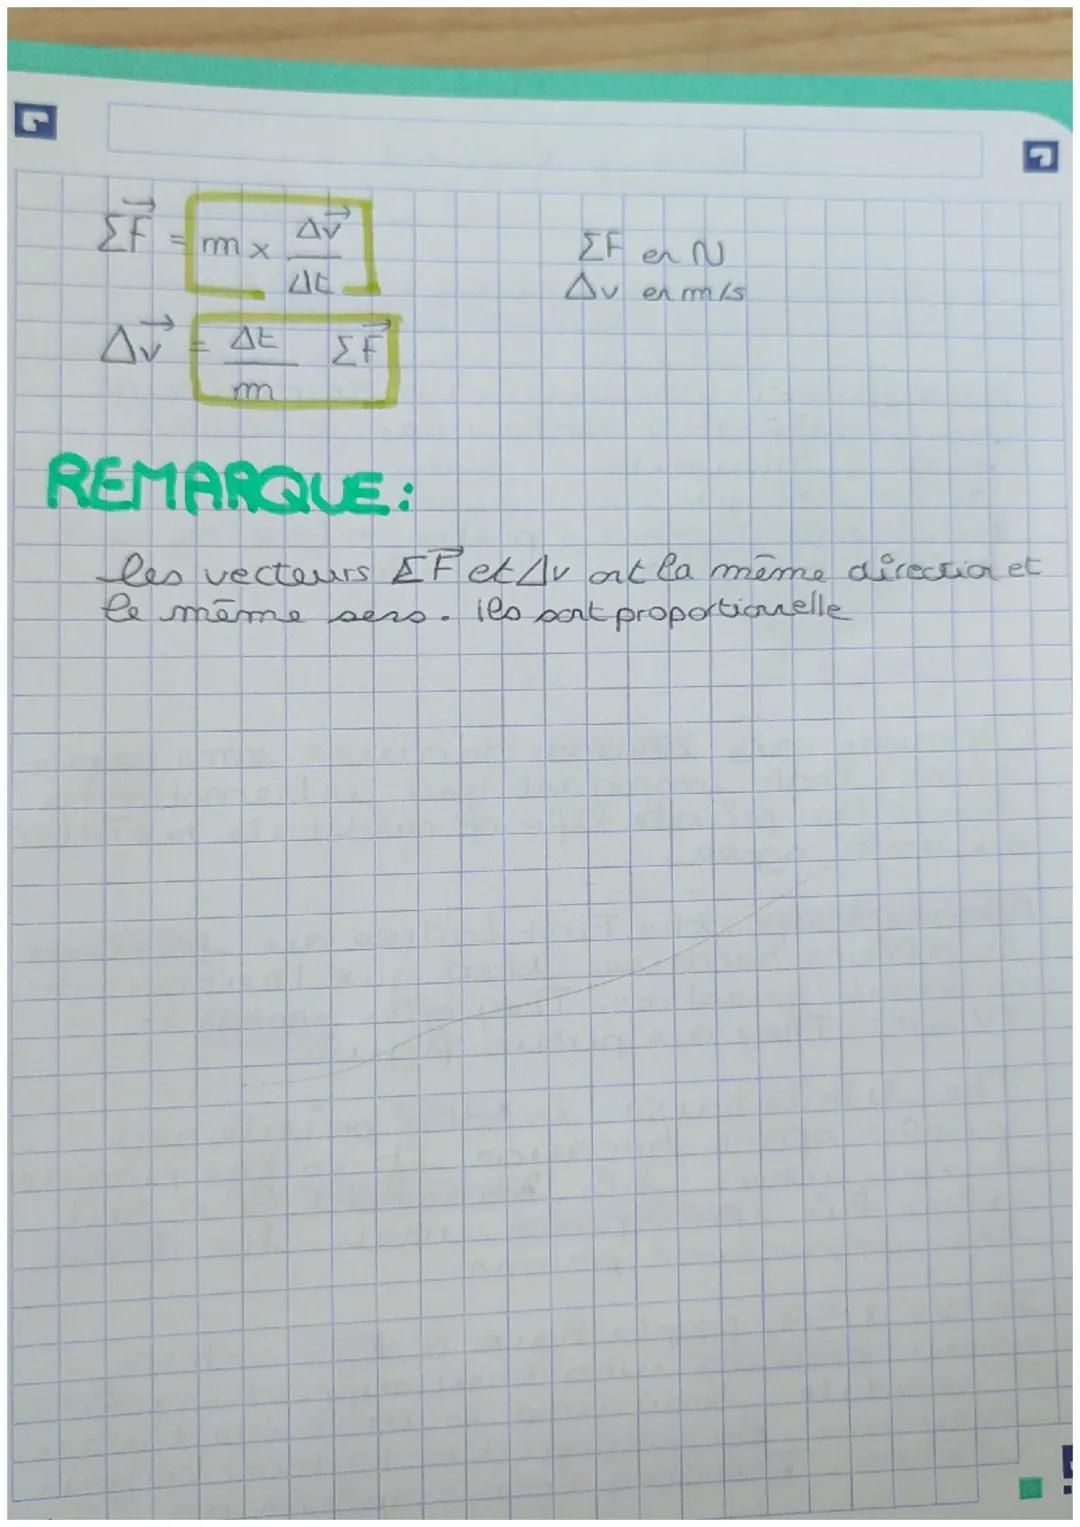 ΣF⃗ = m × Δv⃗/Δt
ΣF en N
Δv en m/s
Δv⃗ = Δt/m ΣF⃗
REMARQUE:
les vecteurs ΣF⃗ et Δv ont la même direction et
le même sens. ils sont proportionnelle